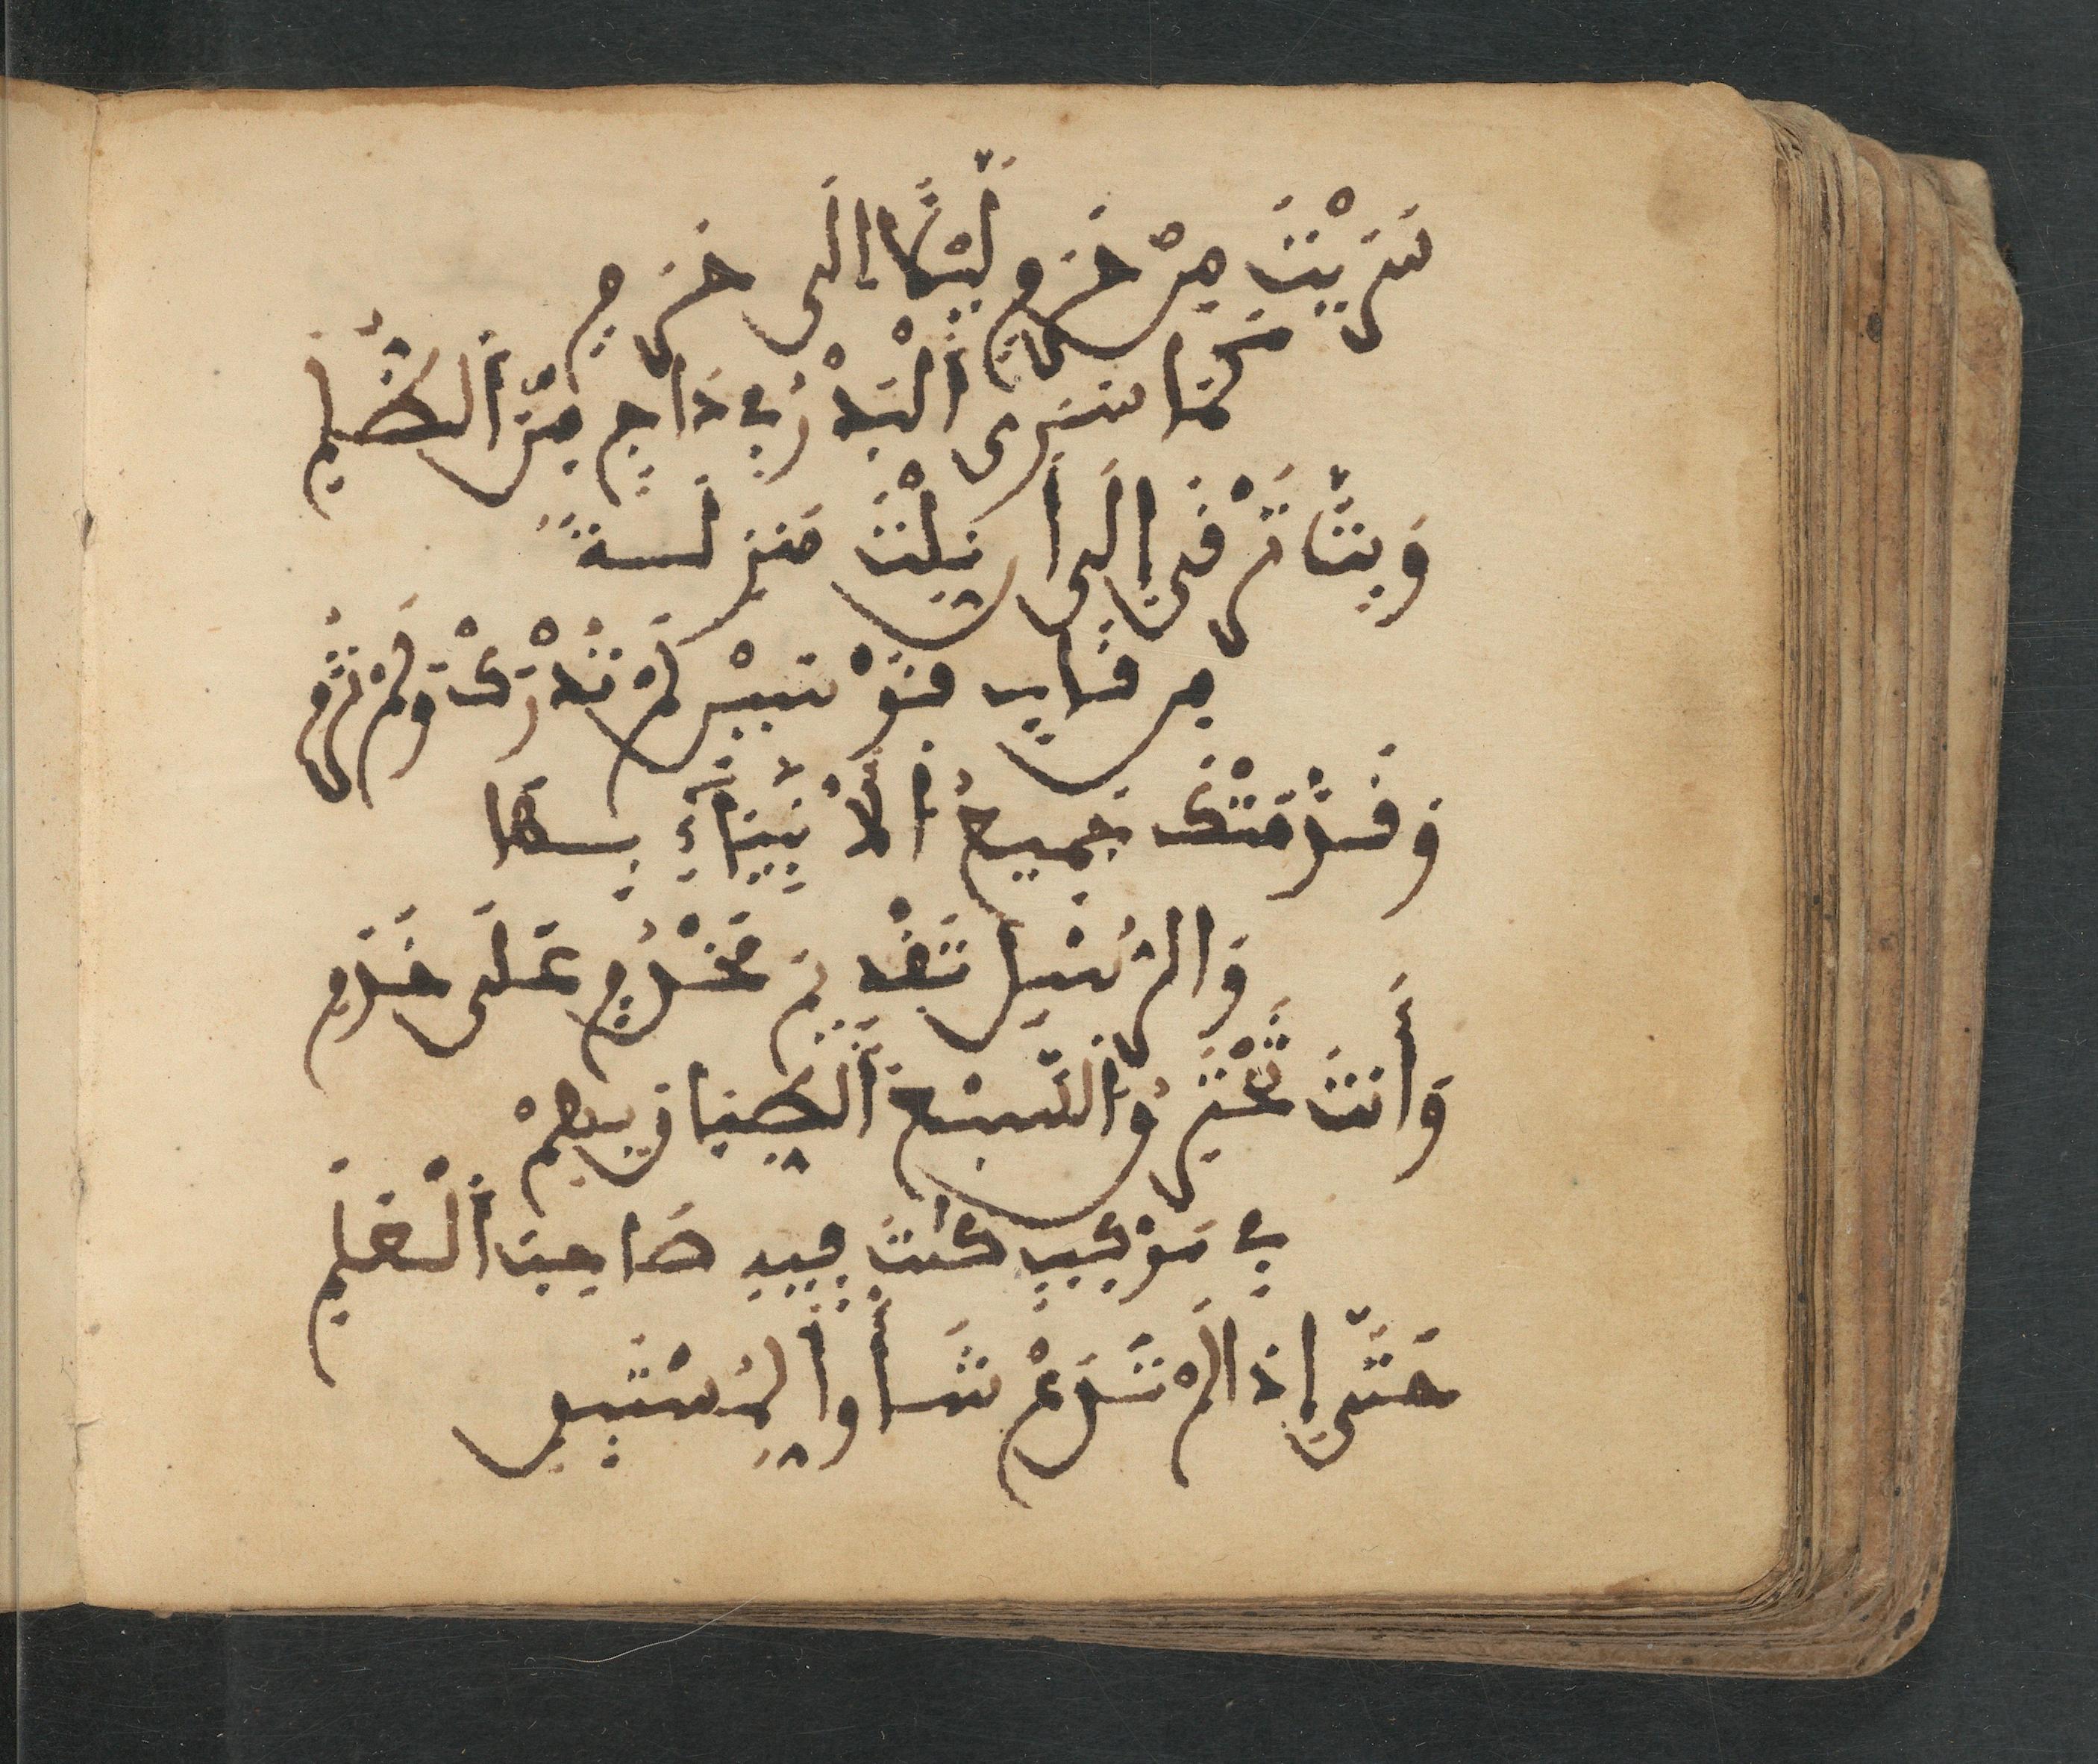 سَرَيْتَ مِنْ حَرَمٍ لَّيْلًا إِلَى حَرَمٍ
كَمَا سَرَى ٱلْبَدْرُ فِي دَاجٍ مِّنَ ٱلظُّلَمِ
وَبِتَّ تَرْقَى إِلَى أَن نِلْتَ مَنزِلَةً
مِن قَابِ قَوْسَيْنِ لَمْ تُدْرَكْ وَلَمْ تُرَمِ
وَقَدَّمَتْكَ جَمِيعُ ٱلْأَنْبِيَاءِ بِهَا
وَالرُّسْلِ تَقْدِيمَ مَخْدُومٍ عَلَى خَدَمِ
وَأَنتَ تَخْتَرِقُ ٱلسَّبْعَ ٱلطِّبَاقَ بِهِمْ
فِي مَوْكِبٍ كُنتَ فِيهِ صَاحِبَ ٱلْعَلَمِ
حَتَّى إِذَا لَمْ تَدَعْ شَأْوًا لِمُسْتَبِقٍ